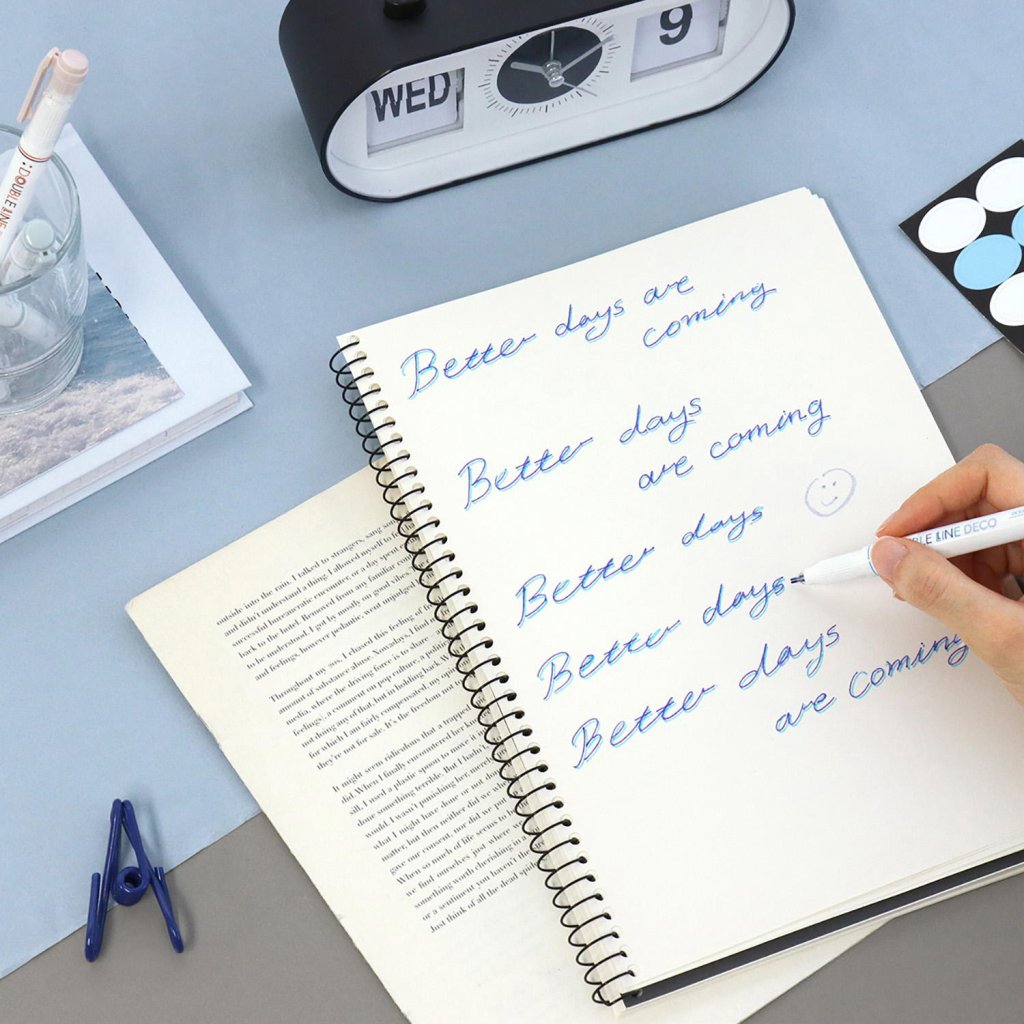 WED
9
:DOUBLE LINE
Better days are
coming
Better days
are coming
Better days
BLE LINE DECO
Better days
Better days
are coming
outside into the rain. I talked to strangers, sang
and didn't understand a thing. I allowed myself to
successful bureaucratic encounter, or a day spent
back to the hotel. Removed from any familiar
to be understood. I got by mostly on good vibes.
and feelings, however pedantic, went
Throughout my 20s, I chased this feeling of
amount of substance abuse. Nowadays, I
media, where the driving force is to share
feelings', a comment on pop culture, a
not doing any of that, but in holding back. W
for which I am fairly compensated, my
they're not for sale. It's the freedom
It might seem ridiculous that a trapped
did. When I finally encountered her
sill, I used a plastic spoon to move
done something terrible. But I hadn't
would. I wasn't punishing her,
what I might have done or not
matter, but then neither did we
gave our consent, nor did we
When so much of life seems to
we find ourselves just where
something worth cherishing in a
or a sentiment you haven't the
Just think of all the dead